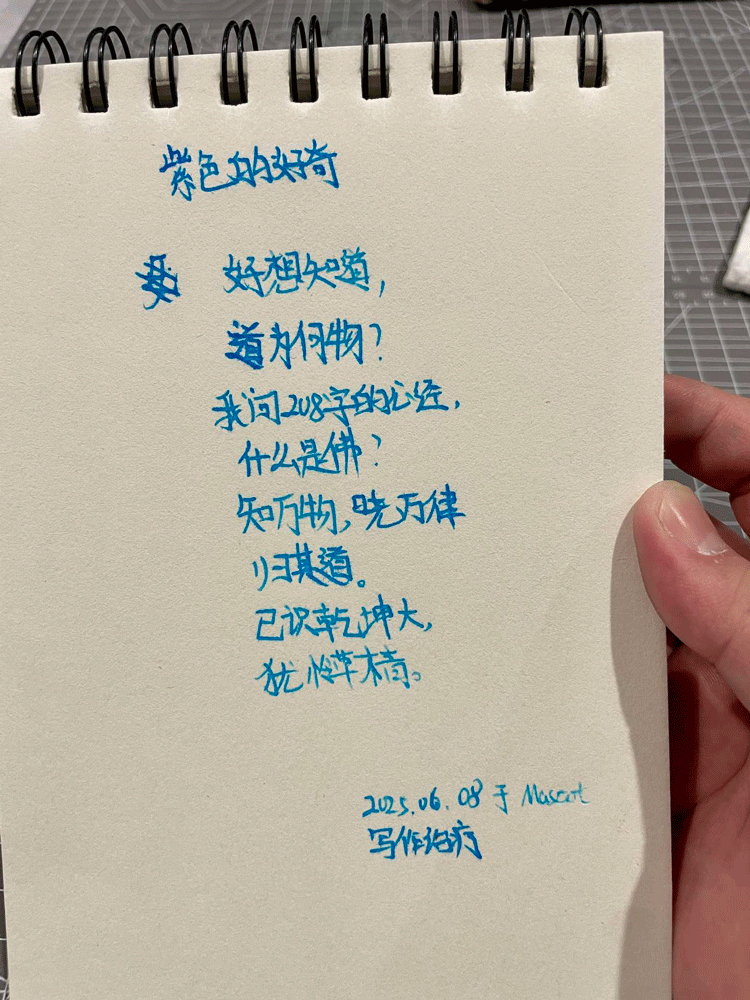 紫色的好奇
好想知道，
道为何物？
我问208字的心经，
什么是佛？
知万物，晓万律
归其道。
已识乾坤大，
犹怜草木青。
2025.06.08 于 Mascot
写作治疗